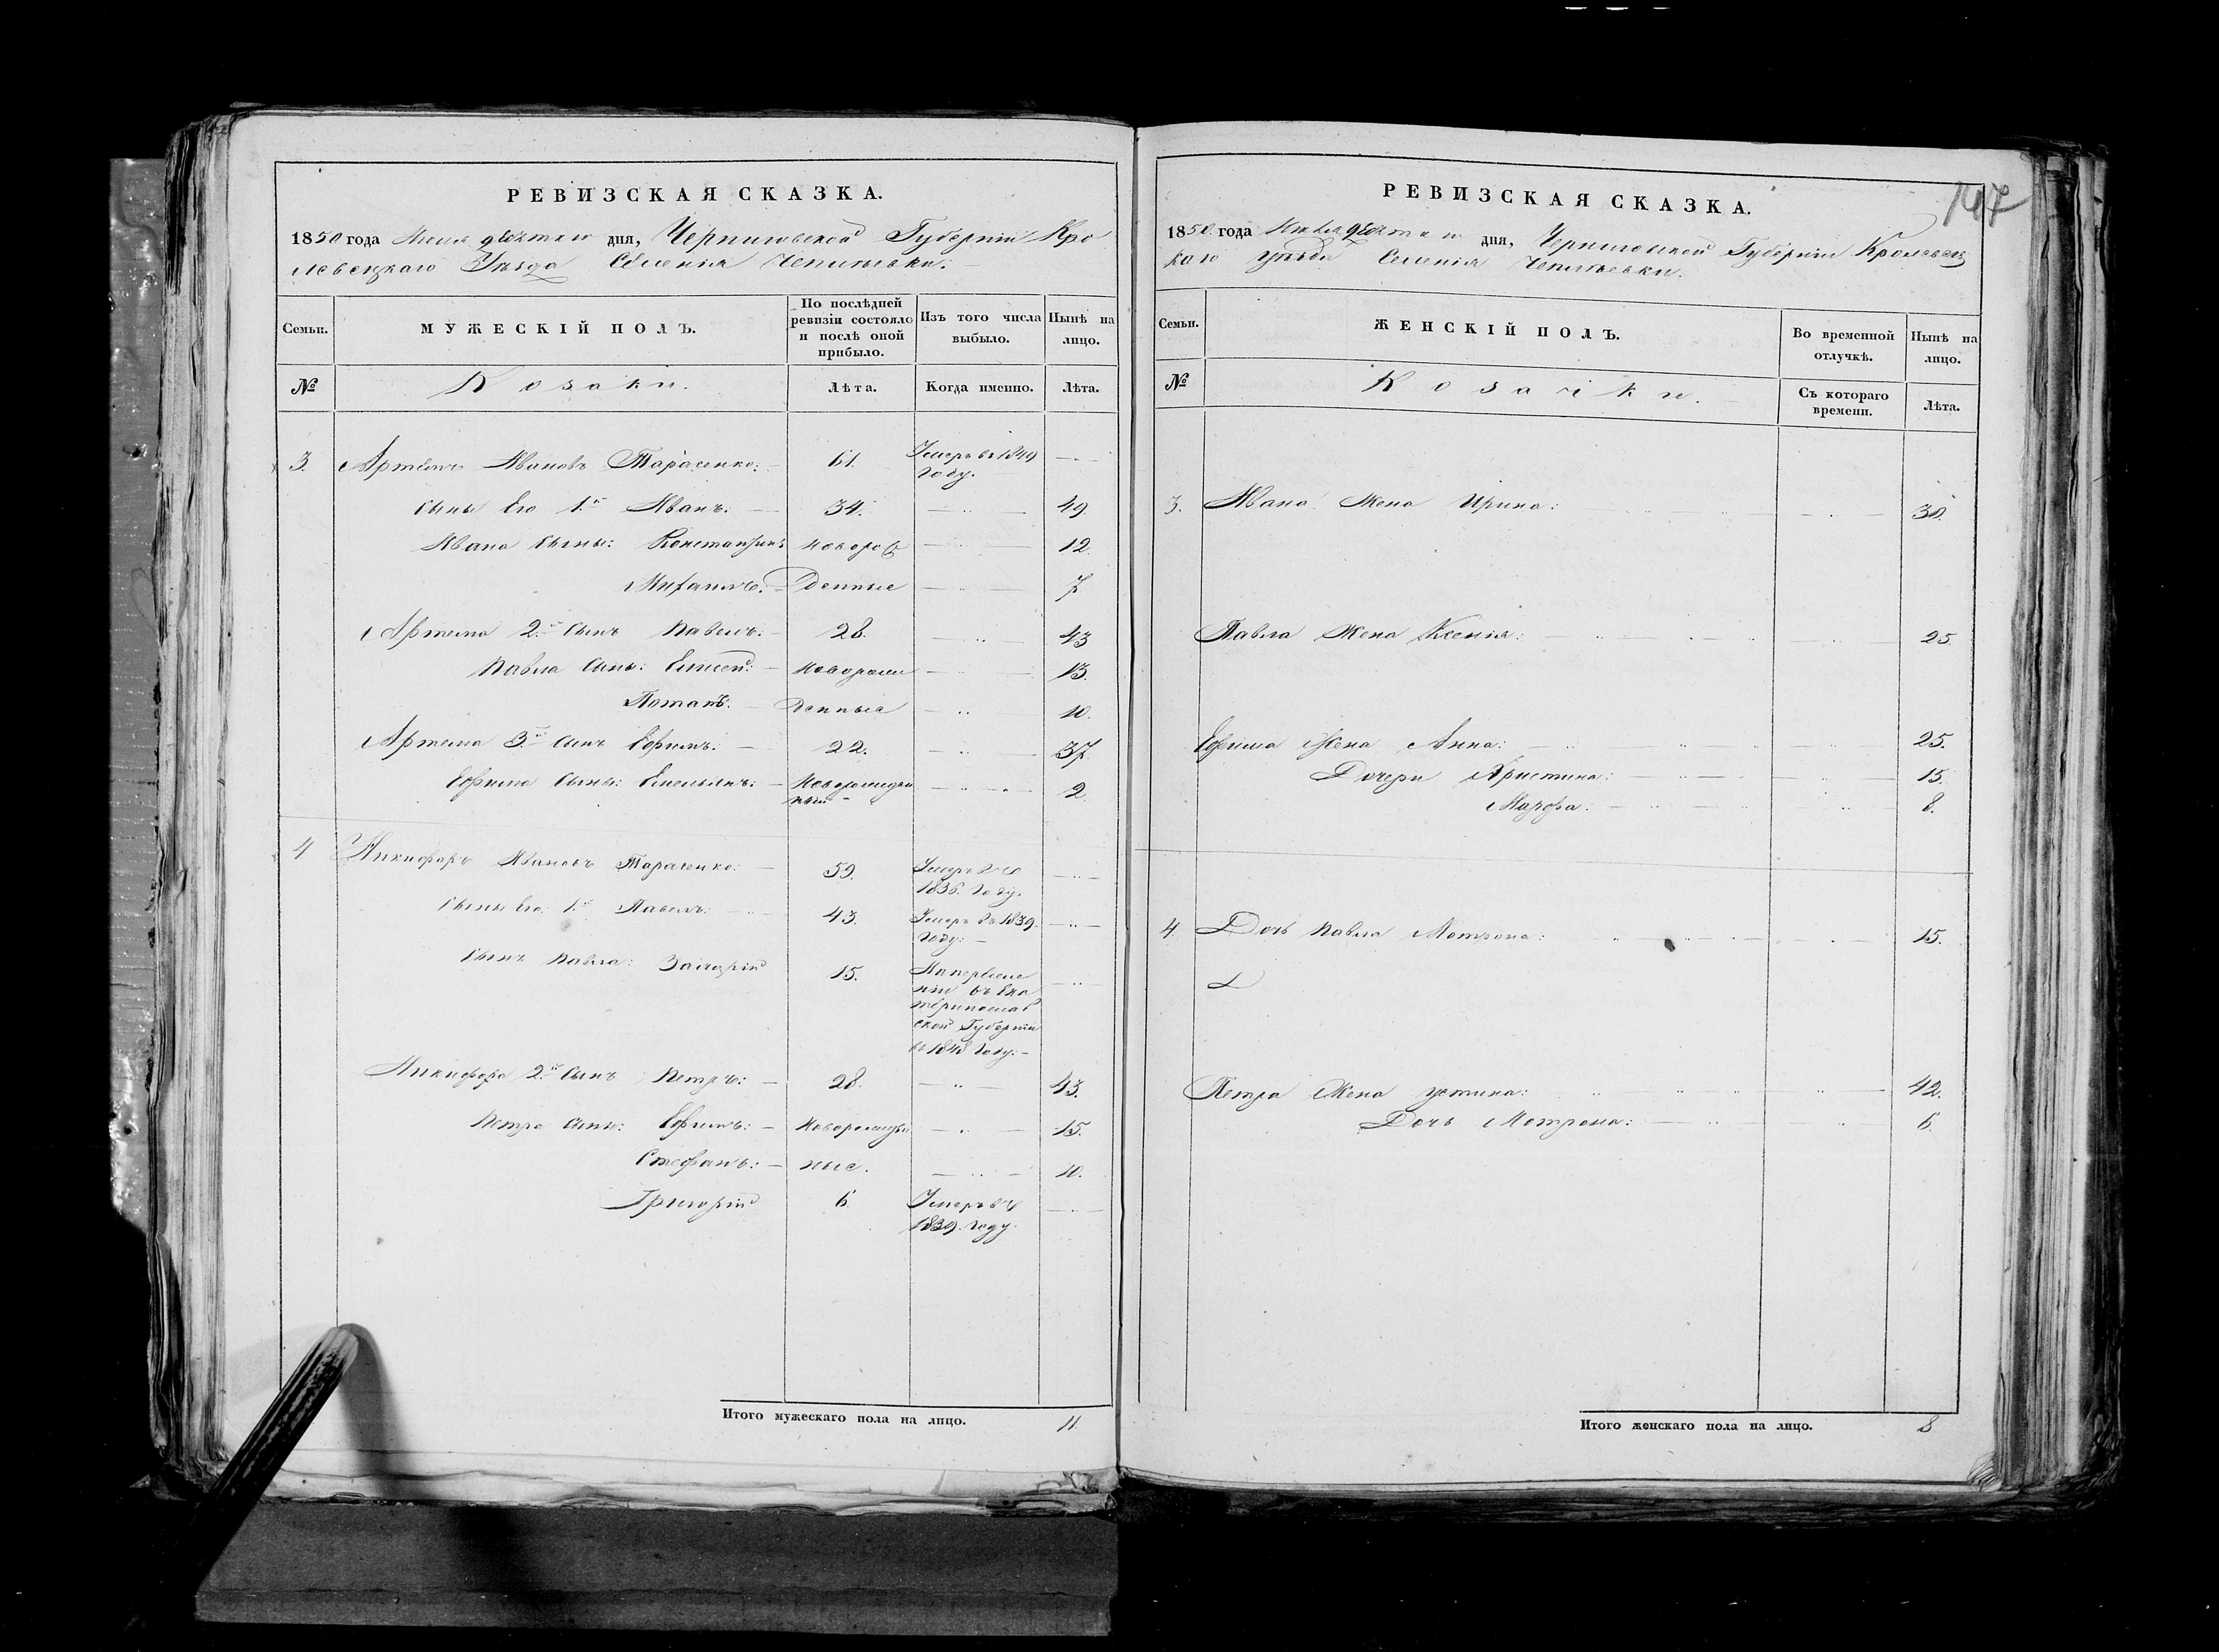 РЕВИЗСКАЯ СКАЗКА.
1850 года Июля девятаго дня, Черниговской Губерніи Кро
левецкаго Уѣзда Селенія Чепліевки.
Семьи.
МУЖЕСКІЙ ПОЛЪ.
По послѣдней ревизіи состояло и послѣ оной прибыло.
Изъ того числа выбыло.
Нынѣ на лицо.
№
Козаки.
Лѣта.
Когда именно.
Лѣта.
3. Артемъ Ивановъ Тарасенко: 61. Умеръ въ 1849 году.
Сыны Его 1й Иванъ: 34. 49.
Ивана Сыны: Константинъ Новорож 12.
Михаилъ: денные 7
Артема 2й Сынъ Павелъ: 28. 43
Павла Сыны: Елисей: Новорож 13.
Потапъ. денные 10.
Артема 3й Сынъ Ефимъ: 22. 37
Ефима Сынъ: Емельянъ: Новорожден
ный 2
4 Никифоръ Ивановъ Тарасенко: 59. Умеръ въ
1836. году.
Сыны Его: 1й Павелъ: 43. Умеръ въ 1839.
году:
Сынъ Павла: Захарій 15. На переселе
ніи въ Ека
теринослав
ской Губерніи
въ 1848 году:
Никифора 2й Сынъ Петръ: 28. 43.
Петра Сыны: Ефимъ: Новорожден 15.
Стефанъ: ные. 10.
Григорій 6. Умеръ въ
1839. году.
Итого мужескаго пола на лицо. 11
РЕВИЗСКАЯ СКАЗКА.
107
1850 года Июля девятаго дня, Черниговской Губерніи Кролевец
каго уѣзда Селенія Чепліевки.
Семьи.
ЖЕНСКІЙ ПОЛЪ.
Во временной отлучкѣ.
Нынѣ на лицо.
№
Козачки.
Съ котораго времени.
Лѣта.
3. Ивана Жена Ирина: 38.
Павла Жена Ксенія: 25.
Ефима Жена Анна: 25.
Дочери Христина: 15.
Марфа: 8.
4. Дочь Павла Мотрона: 15.
Петра Жена Устина: 42.
Дочь Мотрона: 6.
Итого женскаго пола на лицо. 8